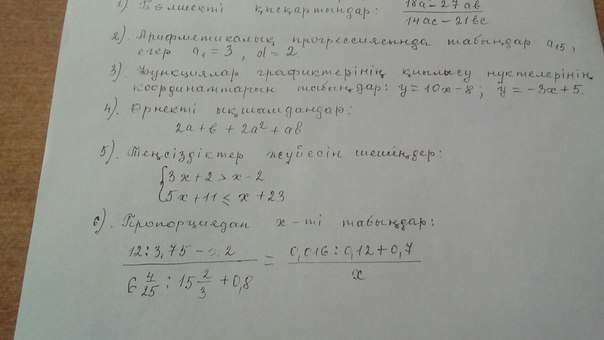 1) Бөлшекті қысқартыңдар: 18a - 27ab / 14ac - 21bc
2). Арифметикалық прогрессиясында табыңдар a₁₅,
егер a₁ = 3, d = 2.
3). Функциялар графиктерінің қиылысу нүктелерінің
координаттарын табыңдар: y = 10x - 8; y = -3x + 5.
4). Өрнекті ықшамдаңдар:
2a + b + 2a² + ab
5). Теңсіздіктер жүбесін шешіңдер:
{3x + 2 > x - 2
5x + 11 ≤ x + 23
6). Пропорциядан x-ті табыңдар:
12 : 3,75 - 2 / 6 4/25 : 15 2/3 + 0,8 = 0,016 : 0,12 + 0,7 / x